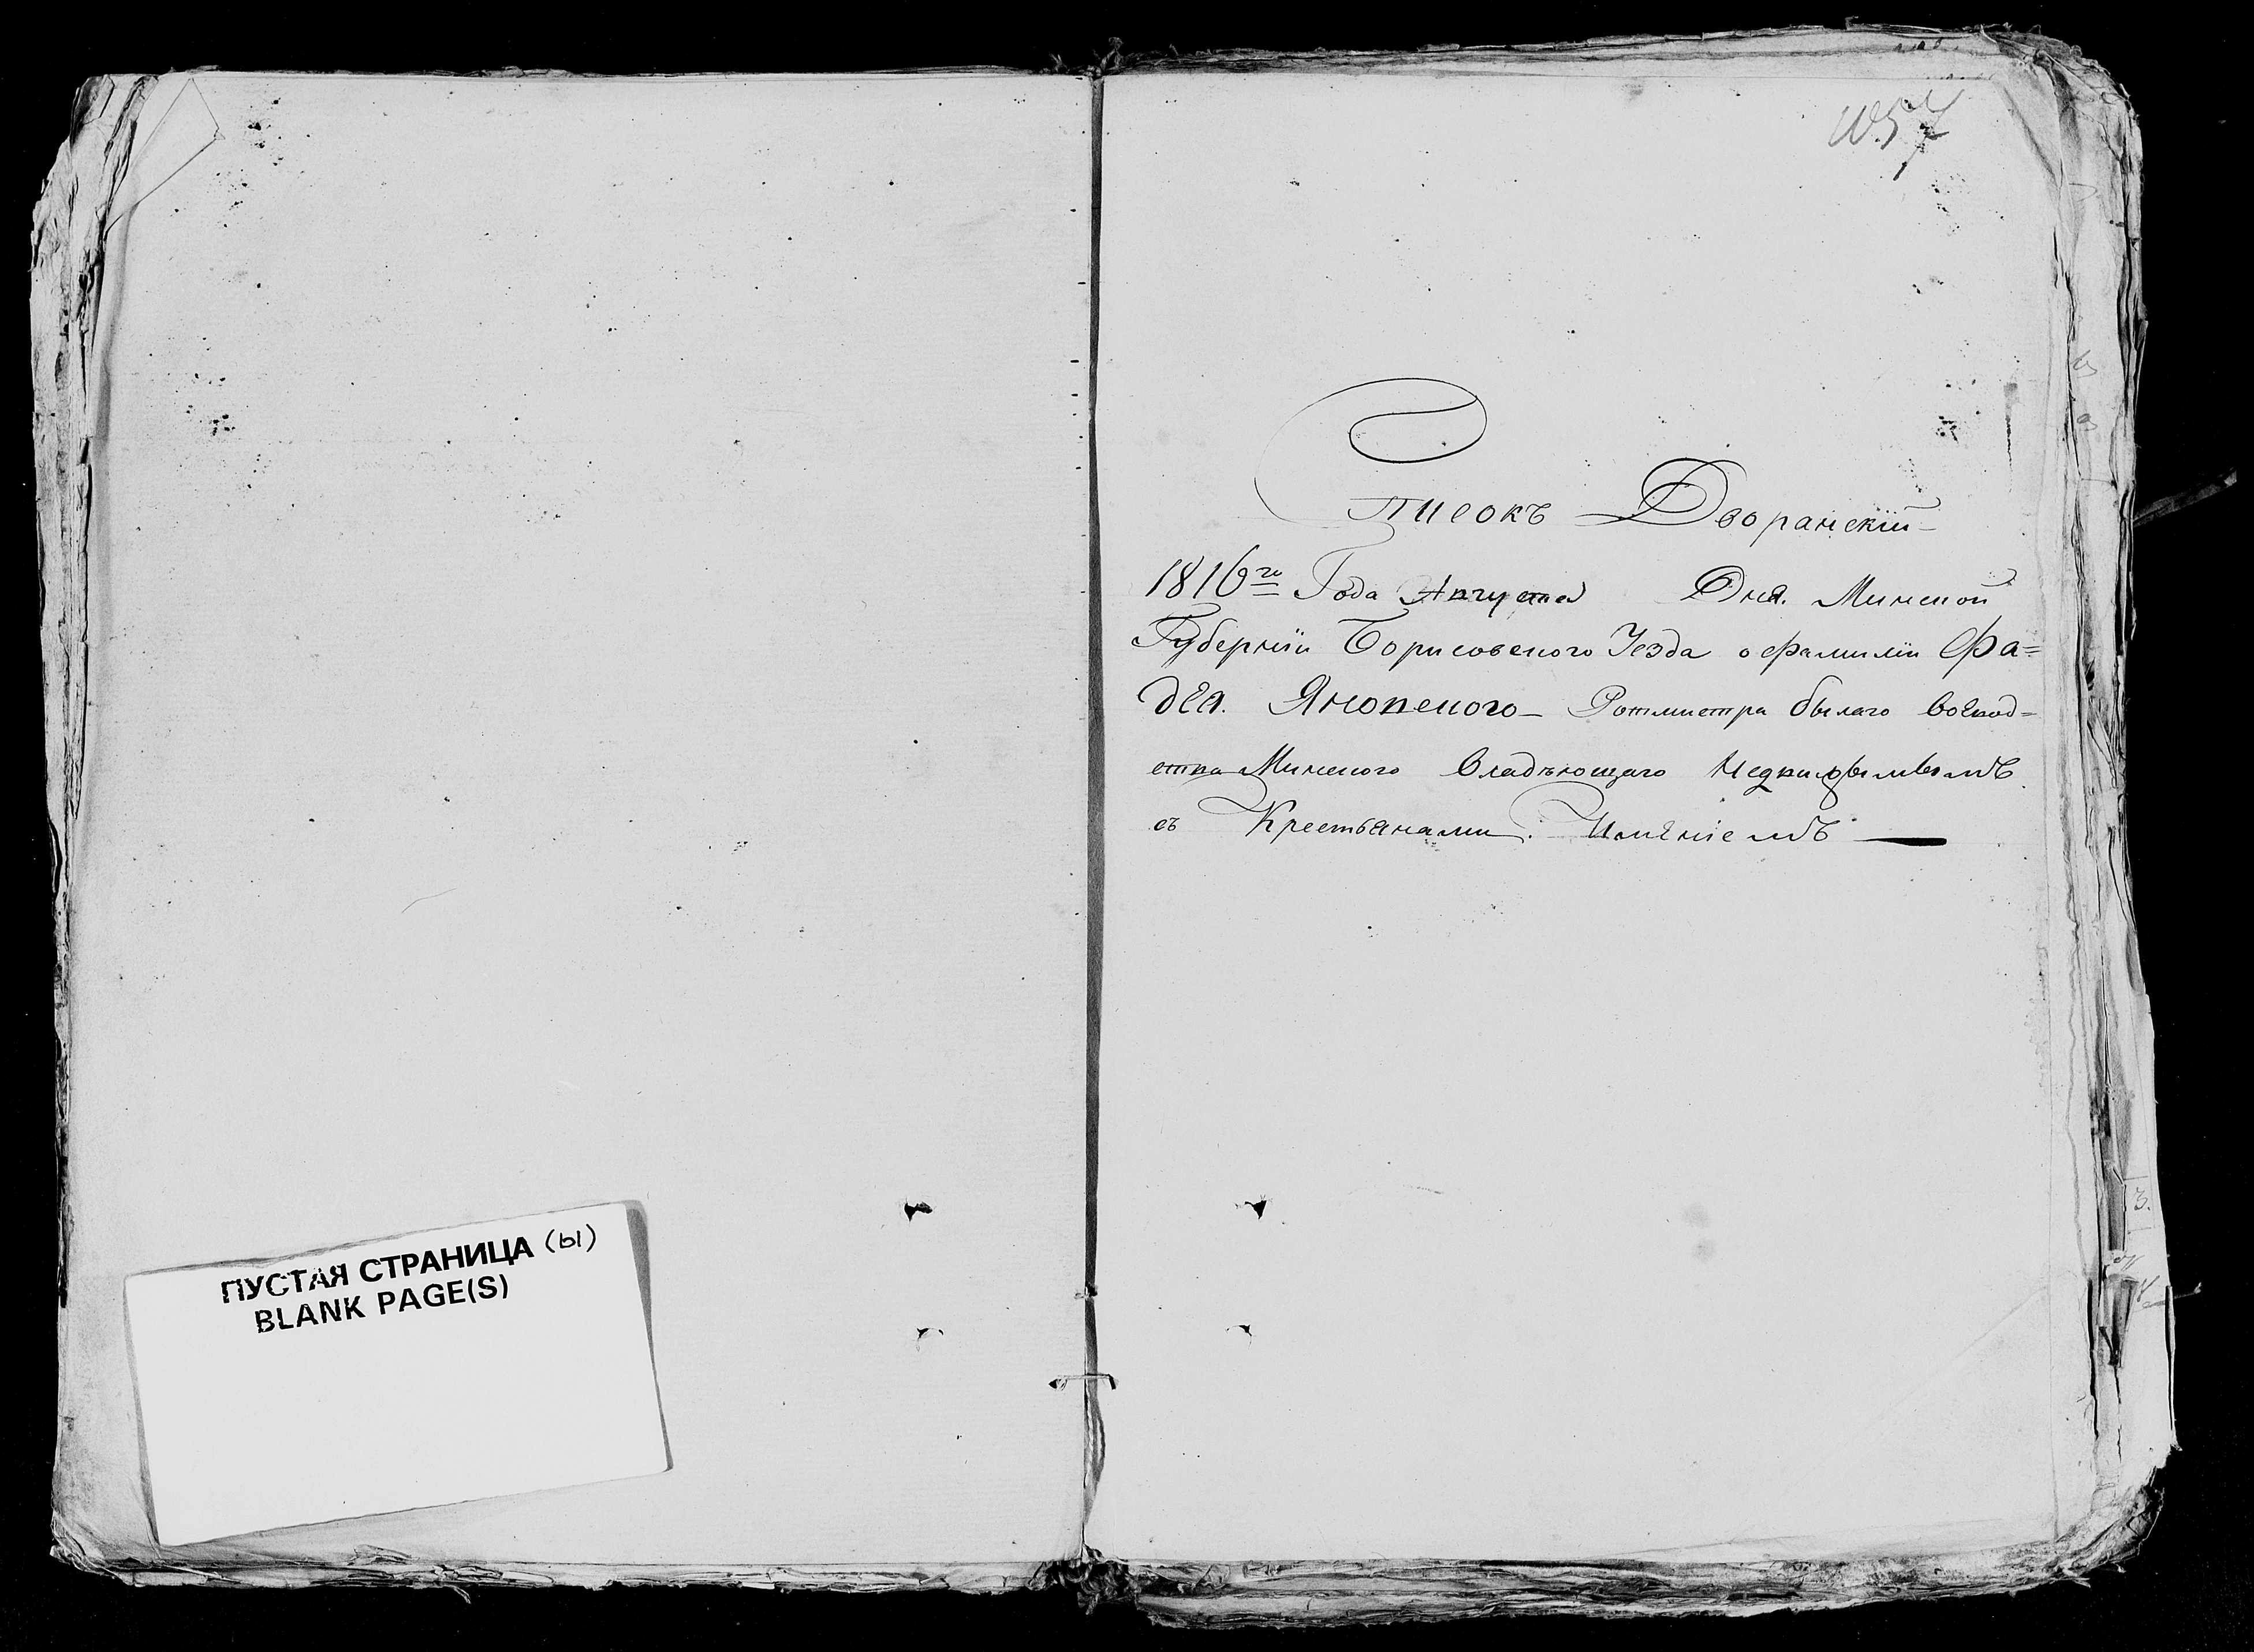 ПУСТАЯ СТРАНИЦА (ы)
BLANK PAGE(S)
Списокъ Дворанскій
1816го Года Августа Дня. Минской
Губерніи Борисовского Уезда о фамиліи Фа=
дея. Яновского Ротмистра былаго воевод=
ства Минского владѣющаго Недвижымымъ
съ Крестьянами. Имениемъ